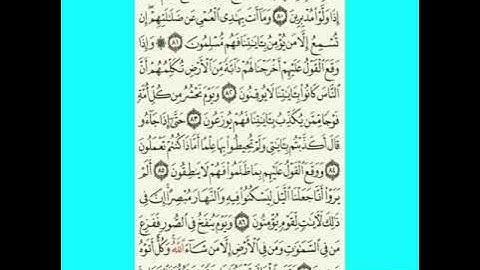 إِذَا وَلَّوْا۟ مُدْبِرِينَ ٨٠ وَمَآ أَنتَ بِهَـٰدِى ٱلْعُمْىِ عَن ضَلَـٰلَتِهِمْ إِن
تُسْمِعُ إِلَّا مَن يُؤْمِنُ بِـَٔايَـٰتِنَا فَهُم مُّسْلِمُونَ ٨١ ۞ وَإِذَا
وَقَعَ ٱلْقَوْلُ عَلَيْهِمْ أَخْرَجْنَا لَهُمْ دَآبَّةً مِّنَ ٱلْأَرْضِ تُكَلِّمُهُمْ أَنَّ
ٱلنَّاسَ كَانُوا۟ بِـَٔايَـٰتِنَا لَا يُوقِنُونَ ٨٢ وَيَوْمَ نَحْشُرُ مِن كُلِّ أُمَّةٍ
فَوْجًا مِّمَّن يُكَذِّبُ بِـَٔايَـٰتِنَا فَهُمْ يُوزَعُونَ ٨٣ حَتَّىٰٓ إِذَا جَآءُو
قَالَ أَكَذَّبْتُم بِـَٔايَـٰتِى وَلَمْ تُحِيطُوا۟ بِهَا عِلْمًا أَمَّاذَا كُنتُمْ تَعْمَلُونَ
٨٤ وَوَقَعَ ٱلْقَوْلُ عَلَيْهِم بِمَا ظَلَمُوا۟ فَهُمْ لَا يَنطِقُونَ ٨٥ أَلَمْ
يَرَوْا۟ أَنَّا جَعَلْنَا ٱلَّيْلَ لِيَسْكُنُوا۟ فِيهِ وَٱلنَّهَارَ مُبْصِرًا ۚ إِنَّ فِى
ذَٰلِكَ لَـَٔايَـٰتٍ لِّقَوْمٍ يُؤْمِنُونَ ٨٦ وَيَوْمَ يُنفَخُ فِى ٱلصُّورِ فَفَزِعَ
مَن فِى ٱلسَّمَـٰوَٰتِ وَمَن فِى ٱلْأَرْضِ إِلَّا مَن شَآءَ ٱللَّهُ ۚ وَكُلٌّ أَتَوْهُ